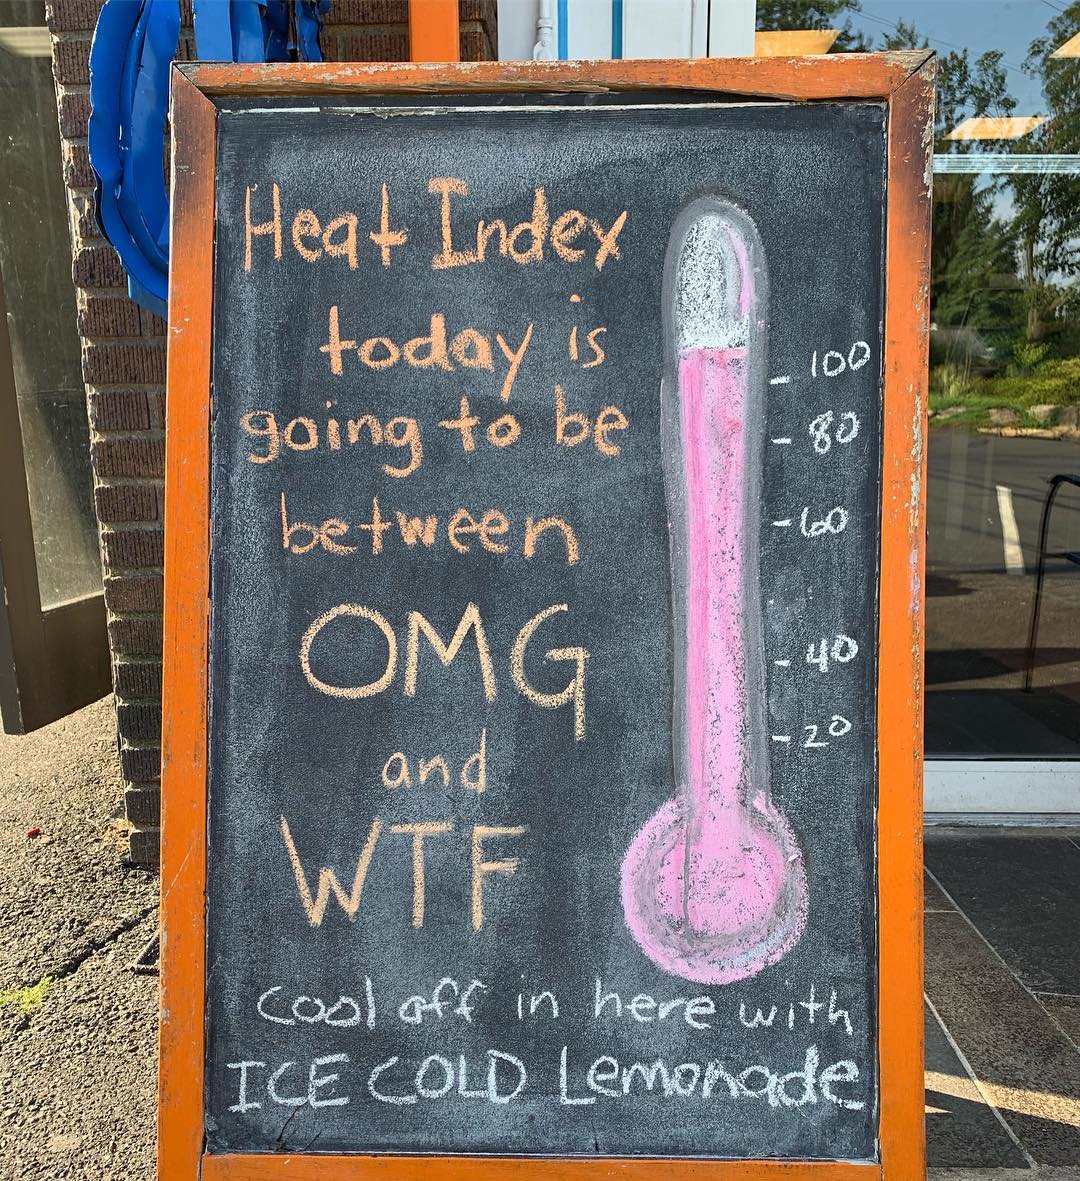 Heat Index
today is
going to be
between
OMG
and
WTF
cool off in here with
ICE COLD Lemonade
- 100
- 80
- 60
- 40
- 20